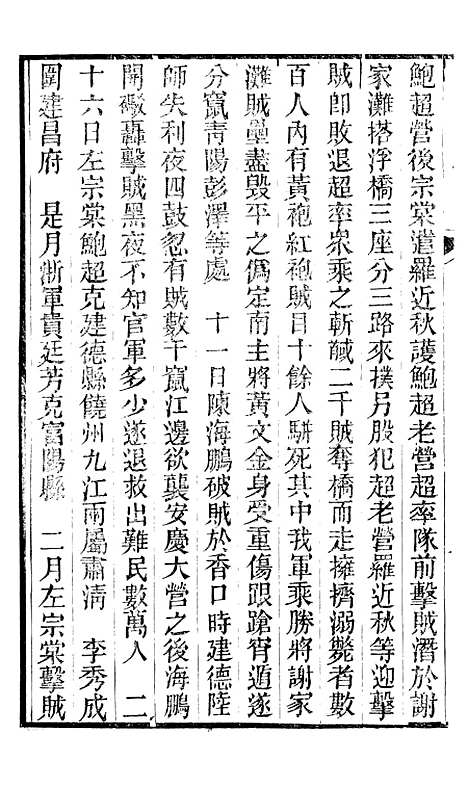 鮑超營後宗棠遣羅近秋護鮑超老營超率隊前擊賊潛於謝
家灘搭浮橋三座分三路來撲另股犯超老營羅近秋等迎擊
賊卽敗退超率衆乘之斬馘二千賊奪橋而走擁擠溺斃者數
百人內有黃袍紅袍賊目十餘人駢死其中我軍乘勝將謝家
灘賊壘盡毀平之僞定南主將黃文金身受重傷踉蹌宵遁遂
分竄靑陽彭澤等處　十一日陳海鵬破賊於香口時建德陸
師失利夜四鼓忽有賊數千竄江邊欲襲安慶大營之後海鵬
開礮轟擊賊黑夜不知官軍多少遂退救出難民數萬人　二
十六日左宗棠鮑超克建德縣饒州九江兩屬肅清　李秀成
圍建昌府　是月浙軍貴廷芳克富陽縣　二月左宗棠擊賊